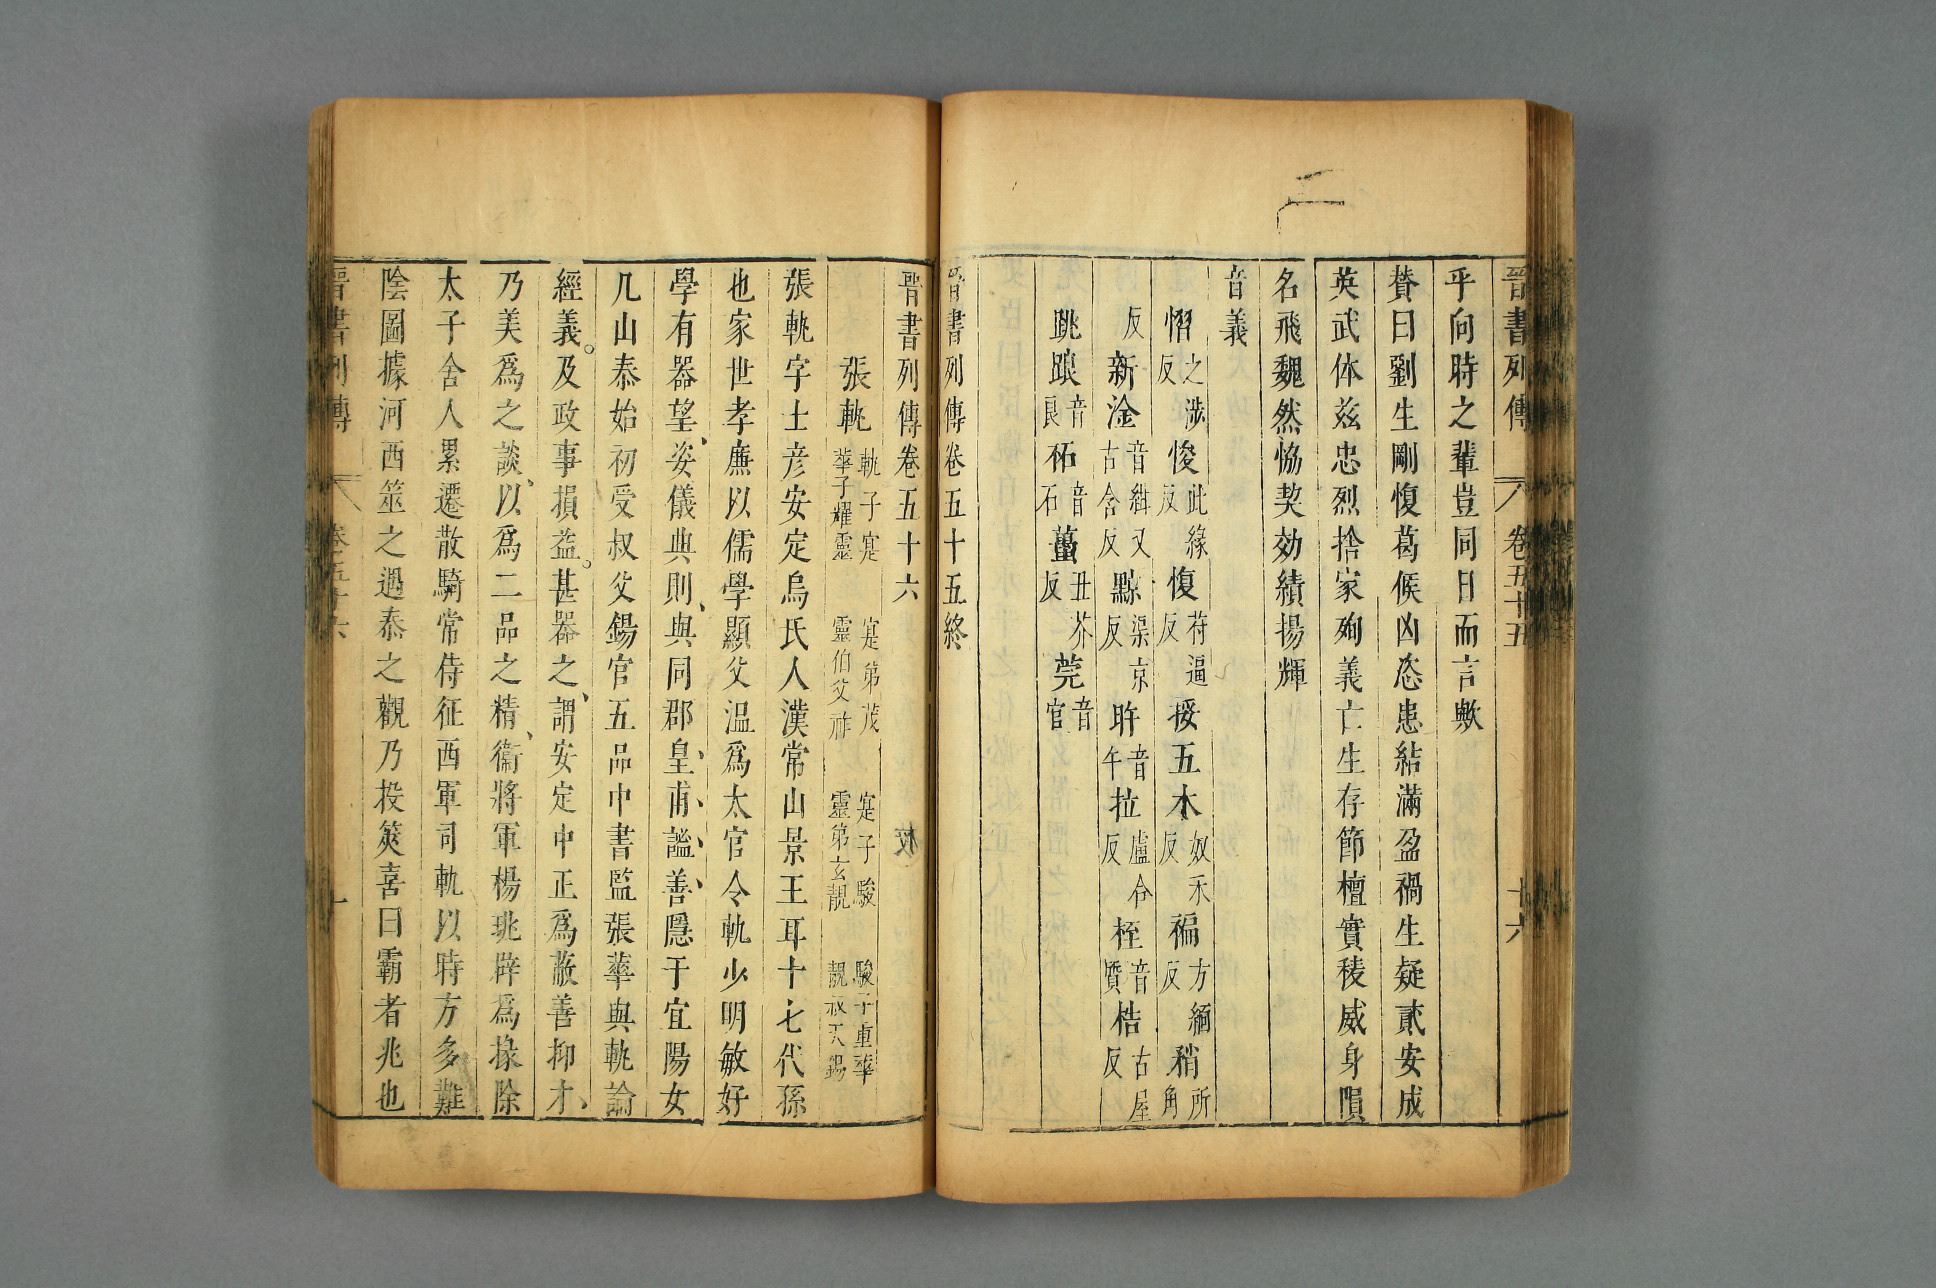 晉書列傳 卷五十五 十六
乎向時之輩豈同日而言歟
贊曰劉生剛愎葛侯凶恣患結滿盈禍生疑貳安成
英武体茲忠烈捨家殉義亡生存節檀實稜威身隕
名飛魏然恊契効績揚輝
音義
慴之涉反 悛此緣反 愎苻逼反 挼五木奴禾反 褊方緬反 矟所角
反 新淦音紺又古含反 黥渠京反 旿音午 拉盧合反 桎音質 梏古屋反
跳踉音良 祏音石 蠆丑芥反 莞音官
晉書列傳卷五十五終
晉書列傳卷五十六
張軌 軌子寔 寔弟茂 寔子駿 駿子重華
華子耀靈 靈伯父祚 靈弟玄靚 靚叔天錫
張軌字士彥安定烏氏人漢常山景王耳十七代孫
也家世孝廉以儒學顯父溫爲太官令軌少明敏好
學有器望、姿儀典則、與同郡皇、甫、謐、善、隱于宜陽女
几山泰始初受叔父錫官五品中書監張華與軌論
經義。及政事損益。甚器之、謂安定中正爲蔽善抑才、
乃美爲之談、以爲二品之精、衞將軍楊珧辟爲掾除
太子舍人累遷散騎常侍征西軍司軌以時方多難
陰圖據河西筮之遇泰之觀乃投筴喜曰霸者兆也
晉書列傳 卷五十六